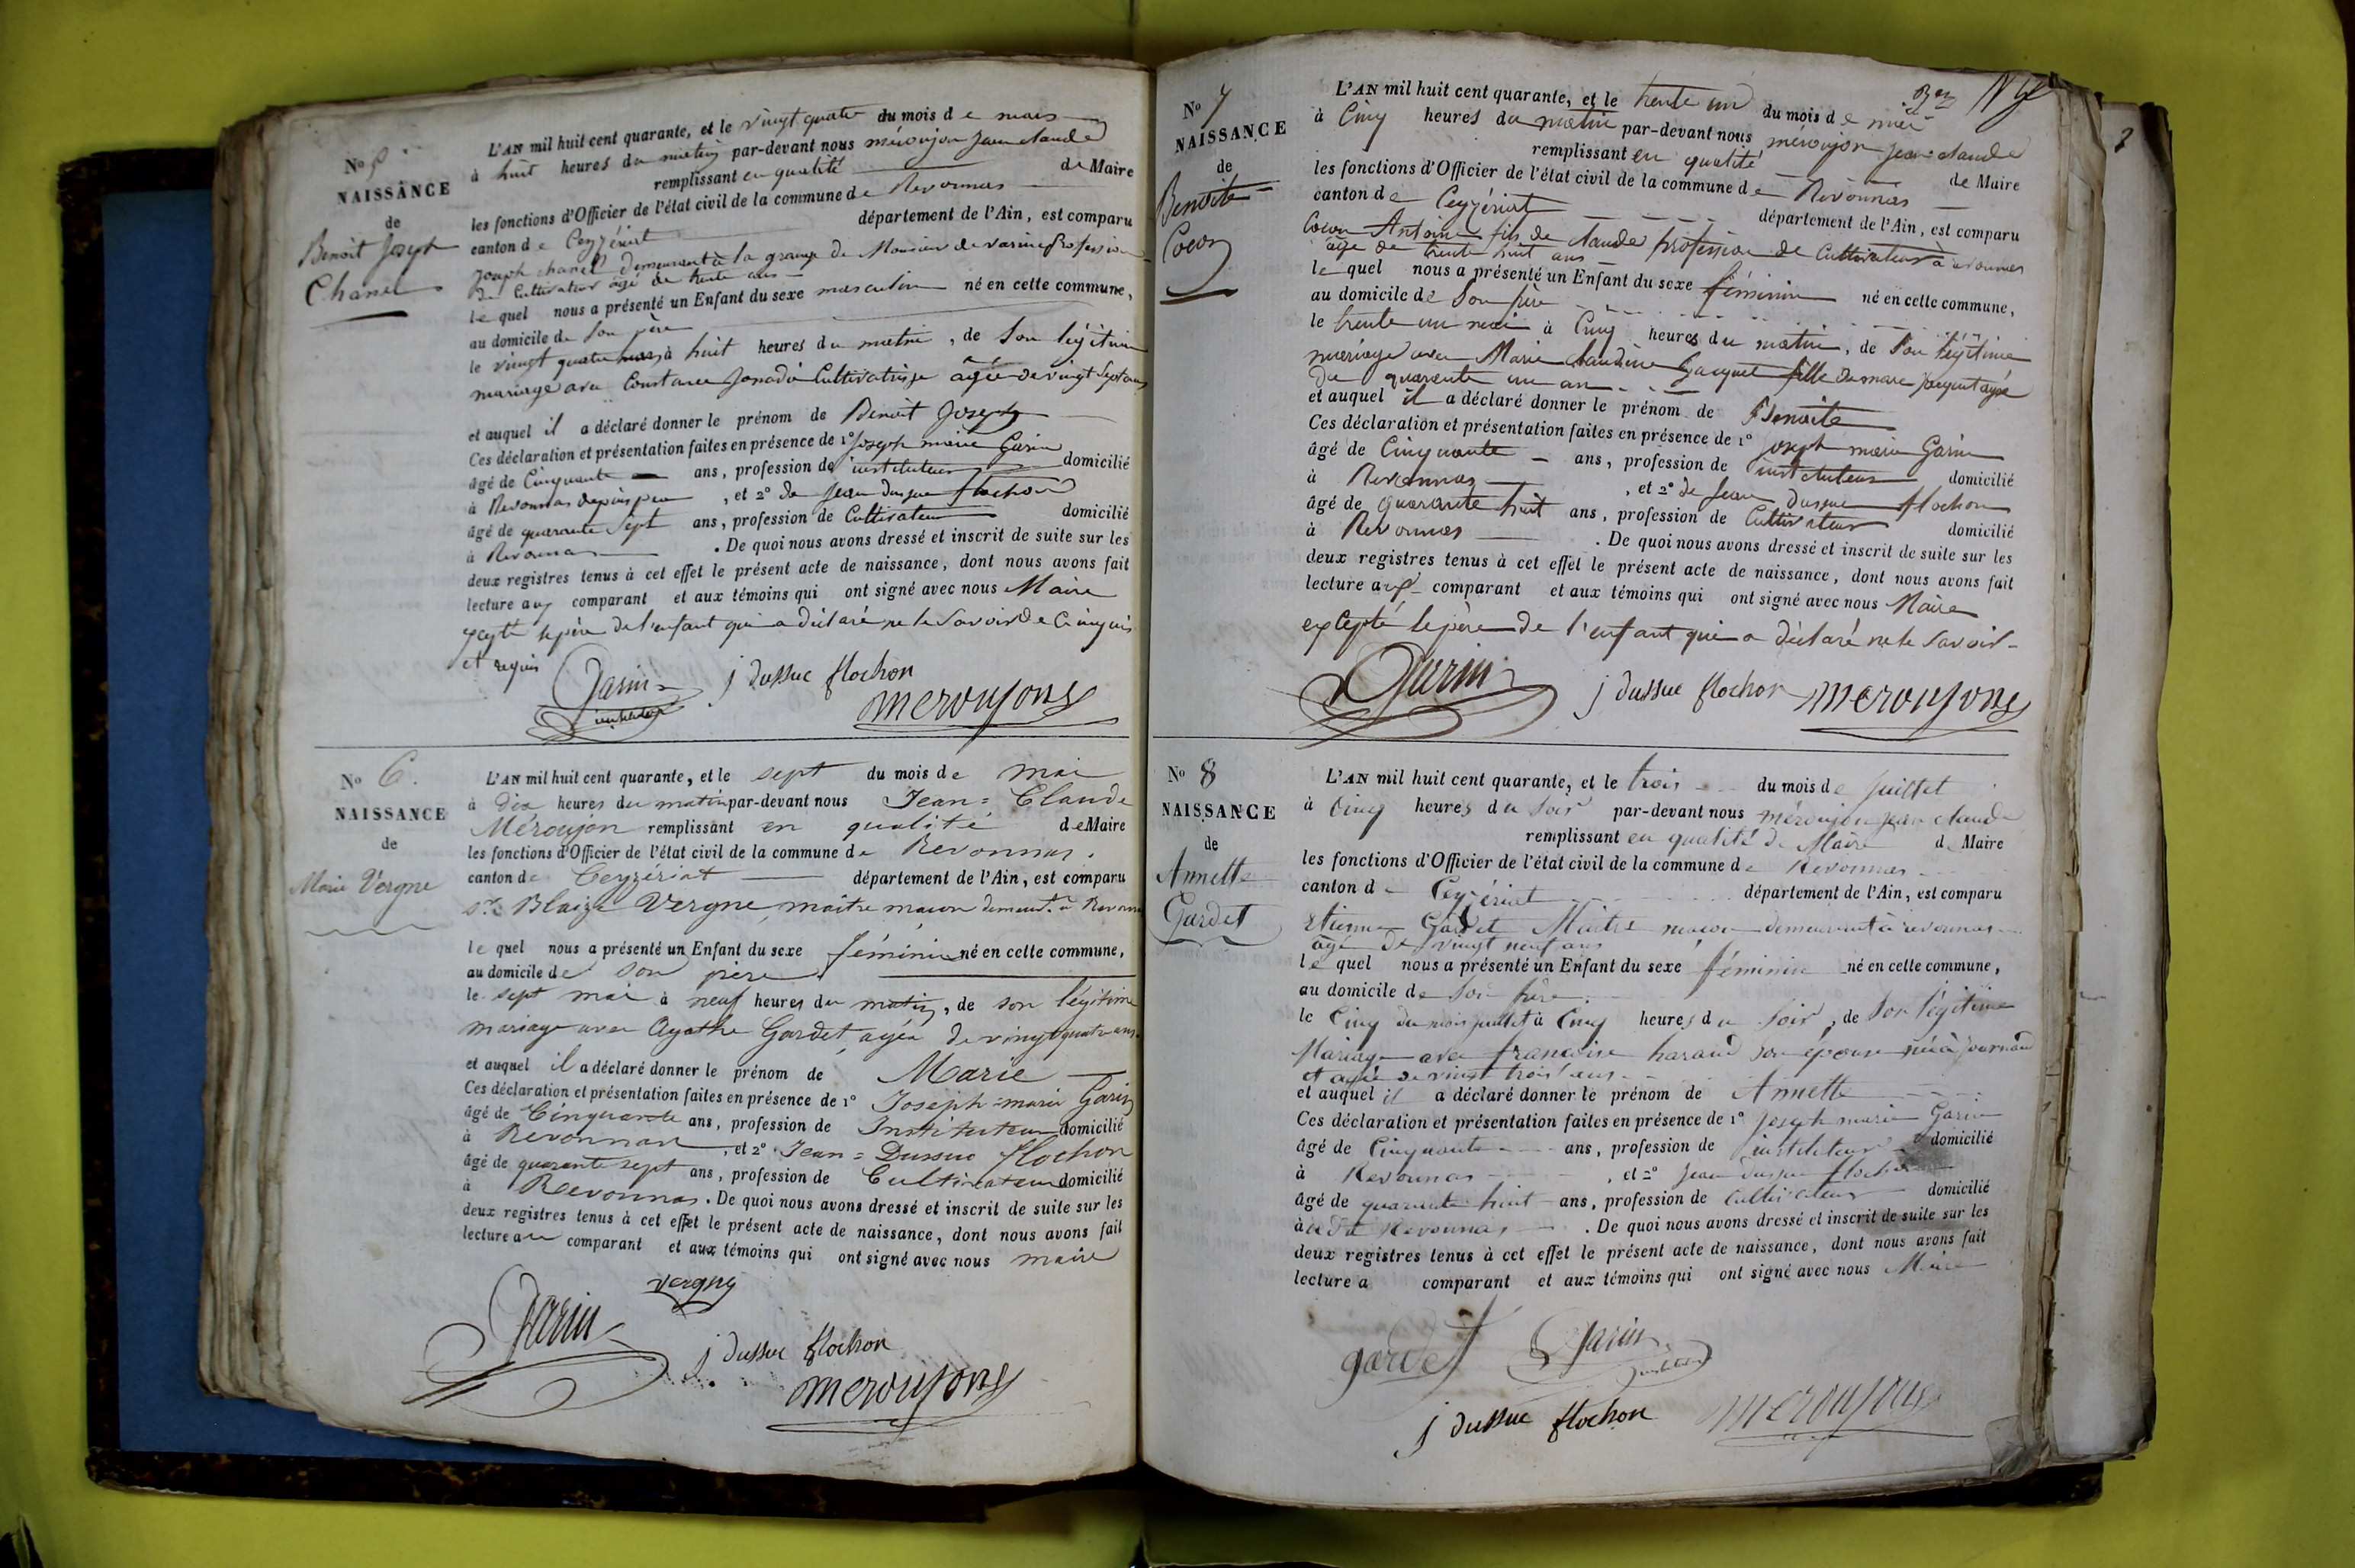 No 5
NAISSANCE
de
Benoit Joseph
Chanel
L'AN mil huit cent quarante, et le vingt quatre du mois de mars
à huit heures du matin par-devant nous méroujon jean claude
remplissant en qualité de Maire
les fonctions d'Officier de l'état civil de la commune de Revonnas
canton de Ceyzériat département de l'Ain, est comparu
joseph chanel demeurant à la grange de Monsieur de varine profession
de Cultivateur âgé de trente ans
le quel nous a présenté un Enfant du sexe masculin né en cette commune,
au domicile de son père
le vingt quatre mars à huit heures du matin, de son légitime
mariage avec Constance Cultivatrice agée de vingt sept ans
et auquel il a déclaré donner le prénom de Benoit Joseph
Ces déclaration et présentation faites en présence de 1° Joseph marie Garin
âgé de Cinquante ans, profession de instituteur domicilié
à Revonnas depuis peu, et 2° de Jean dussuc flochon
âgé de quarante sept ans, profession de Cultivateur domicilié
à Revonnas. De quoi nous avons dressé et inscrit de suite sur les
deux registres tenus à cet effet le présent acte de naissance, dont nous avons fait
lecture aux comparant et aux témoins qui ont signé avec nous Maire
le père de l'enfant qui a déclaré ne le savoir de ce enquis
et requis
Garin
instituteur
j dussuc flochon
meroujons
No 6.
NAISSANCE
de
Marie Vergne
L'AN mil huit cent quarante, et le sept du mois de mai
à dix heures du matin par-devant nous Jean=Claude
Méroujon remplissant en qualité de Maire
les fonctions d'Officier de l'état civil de la commune de Revonnas.
canton de Ceyzeriat département de l'Ain, est comparu
sr. Blaize Vergne, maître maçon demeurt. à Revonnas
le quel nous a présenté un Enfant du sexe féminin né en cette commune,
au domicile de son père
le sept mai à neuf heures du matin, de son légitime
mariage avec Agathe Gardet, agée de vingt quatre ans.
et auquel il a déclaré donner le prénom de Marie
Ces déclaration et présentation faites en présence de 1° Joseph=marie Garin
âgé de Cinquante ans, profession de Instituteur domicilié
à Revonnas, et 2° Jean=Dussuc flochon
âgé de quarante sept ans, profession de Cultivateur domicilié
à Revonnas. De quoi nous avons dressé et inscrit de suite sur les
deux registres tenus à cet effet le présent acte de naissance, dont nous avons fait
lecture au comparant et aux témoins qui ont signé avec nous maire
vergne
Garin
j dussuc flochon
meroujons
No 7
NAISSANCE
de
Benoite
Cocon
L'AN mil huit cent quarante, et le trente un du mois de mai
à Cinq heures du matin par-devant nous méroujon jean=claude
remplissant en qualité de Maire
les fonctions d'Officier de l'état civil de la commune de Revonnas
canton de Ceyzériat département de l'Ain, est comparu
Cocon Antoine fils de claude profession de Cultivateur à revonnas
âgé de trente huit ans
le quel nous a présenté un Enfant du sexe féminin né en cette commune,
au domicile de son père
le trente un mai à Cinq heures du matin, de son légitime
mariage avec Marie claudine Jacquet fille de marc jacquet agée
de quarante un an
et auquel il a déclaré donner le prénom de Benoite
Ces déclaration et présentation faites en présence de 1° joseph marie Garin
âgé de Cinquante ans, profession de instituteur domicilié
à Revonnas, et 2° de jean dussuc flochon
âgé de quarante huit ans, profession de Cultivateur domicilié
à Revonnas. De quoi nous avons dressé et inscrit de suite sur les
deux registres tenus à cet effet le présent acte de naissance, dont nous avons fait
lecture aux comparant et aux témoins qui ont signé avec nous Maire
excepté le père de l'enfant qui a déclaré ne le savoir
Garin
j dussuc flochon
meroujons
No 8
NAISSANCE
de
Annette
Gardet
L'AN mil huit cent quarante, et le trois du mois de juillet
à Cinq heures du soir par-devant nous méroujon jean claude
remplissant en qualité de Maire de Maire
les fonctions d'Officier de l'état civil de la commune de Revonnas
canton de Ceyzériat département de l'Ain, est comparu
Etienne Gardet Maitre macon demeurant à revonnas
âgé de vingt neuf ans
le quel nous a présenté un Enfant du sexe féminin né en cette commune,
au domicile de son père
le Cinq du mois juillet à Cinq heures du soir, de son légitime
Mariage avec francoise haraud son épouse née à
et agée de vingt trois ans
et auquel il a déclaré donner le prénom de Annette
Ces déclaration et présentation faites en présence de 1° joseph marie Garin
âgé de Cinquante ans, profession de instituteur domicilié
à Revonnas, et 2° jean dussuc flochon
âgé de quarante huit ans, profession de Cultivateur domicilié
à Revonnas. De quoi nous avons dressé et inscrit de suite sur les
deux registres tenus à cet effet le présent acte de naissance, dont nous avons fait
lecture a comparant et aux témoins qui ont signé avec nous Maire
gardet
Garin
j dussuc flochon
meroujons